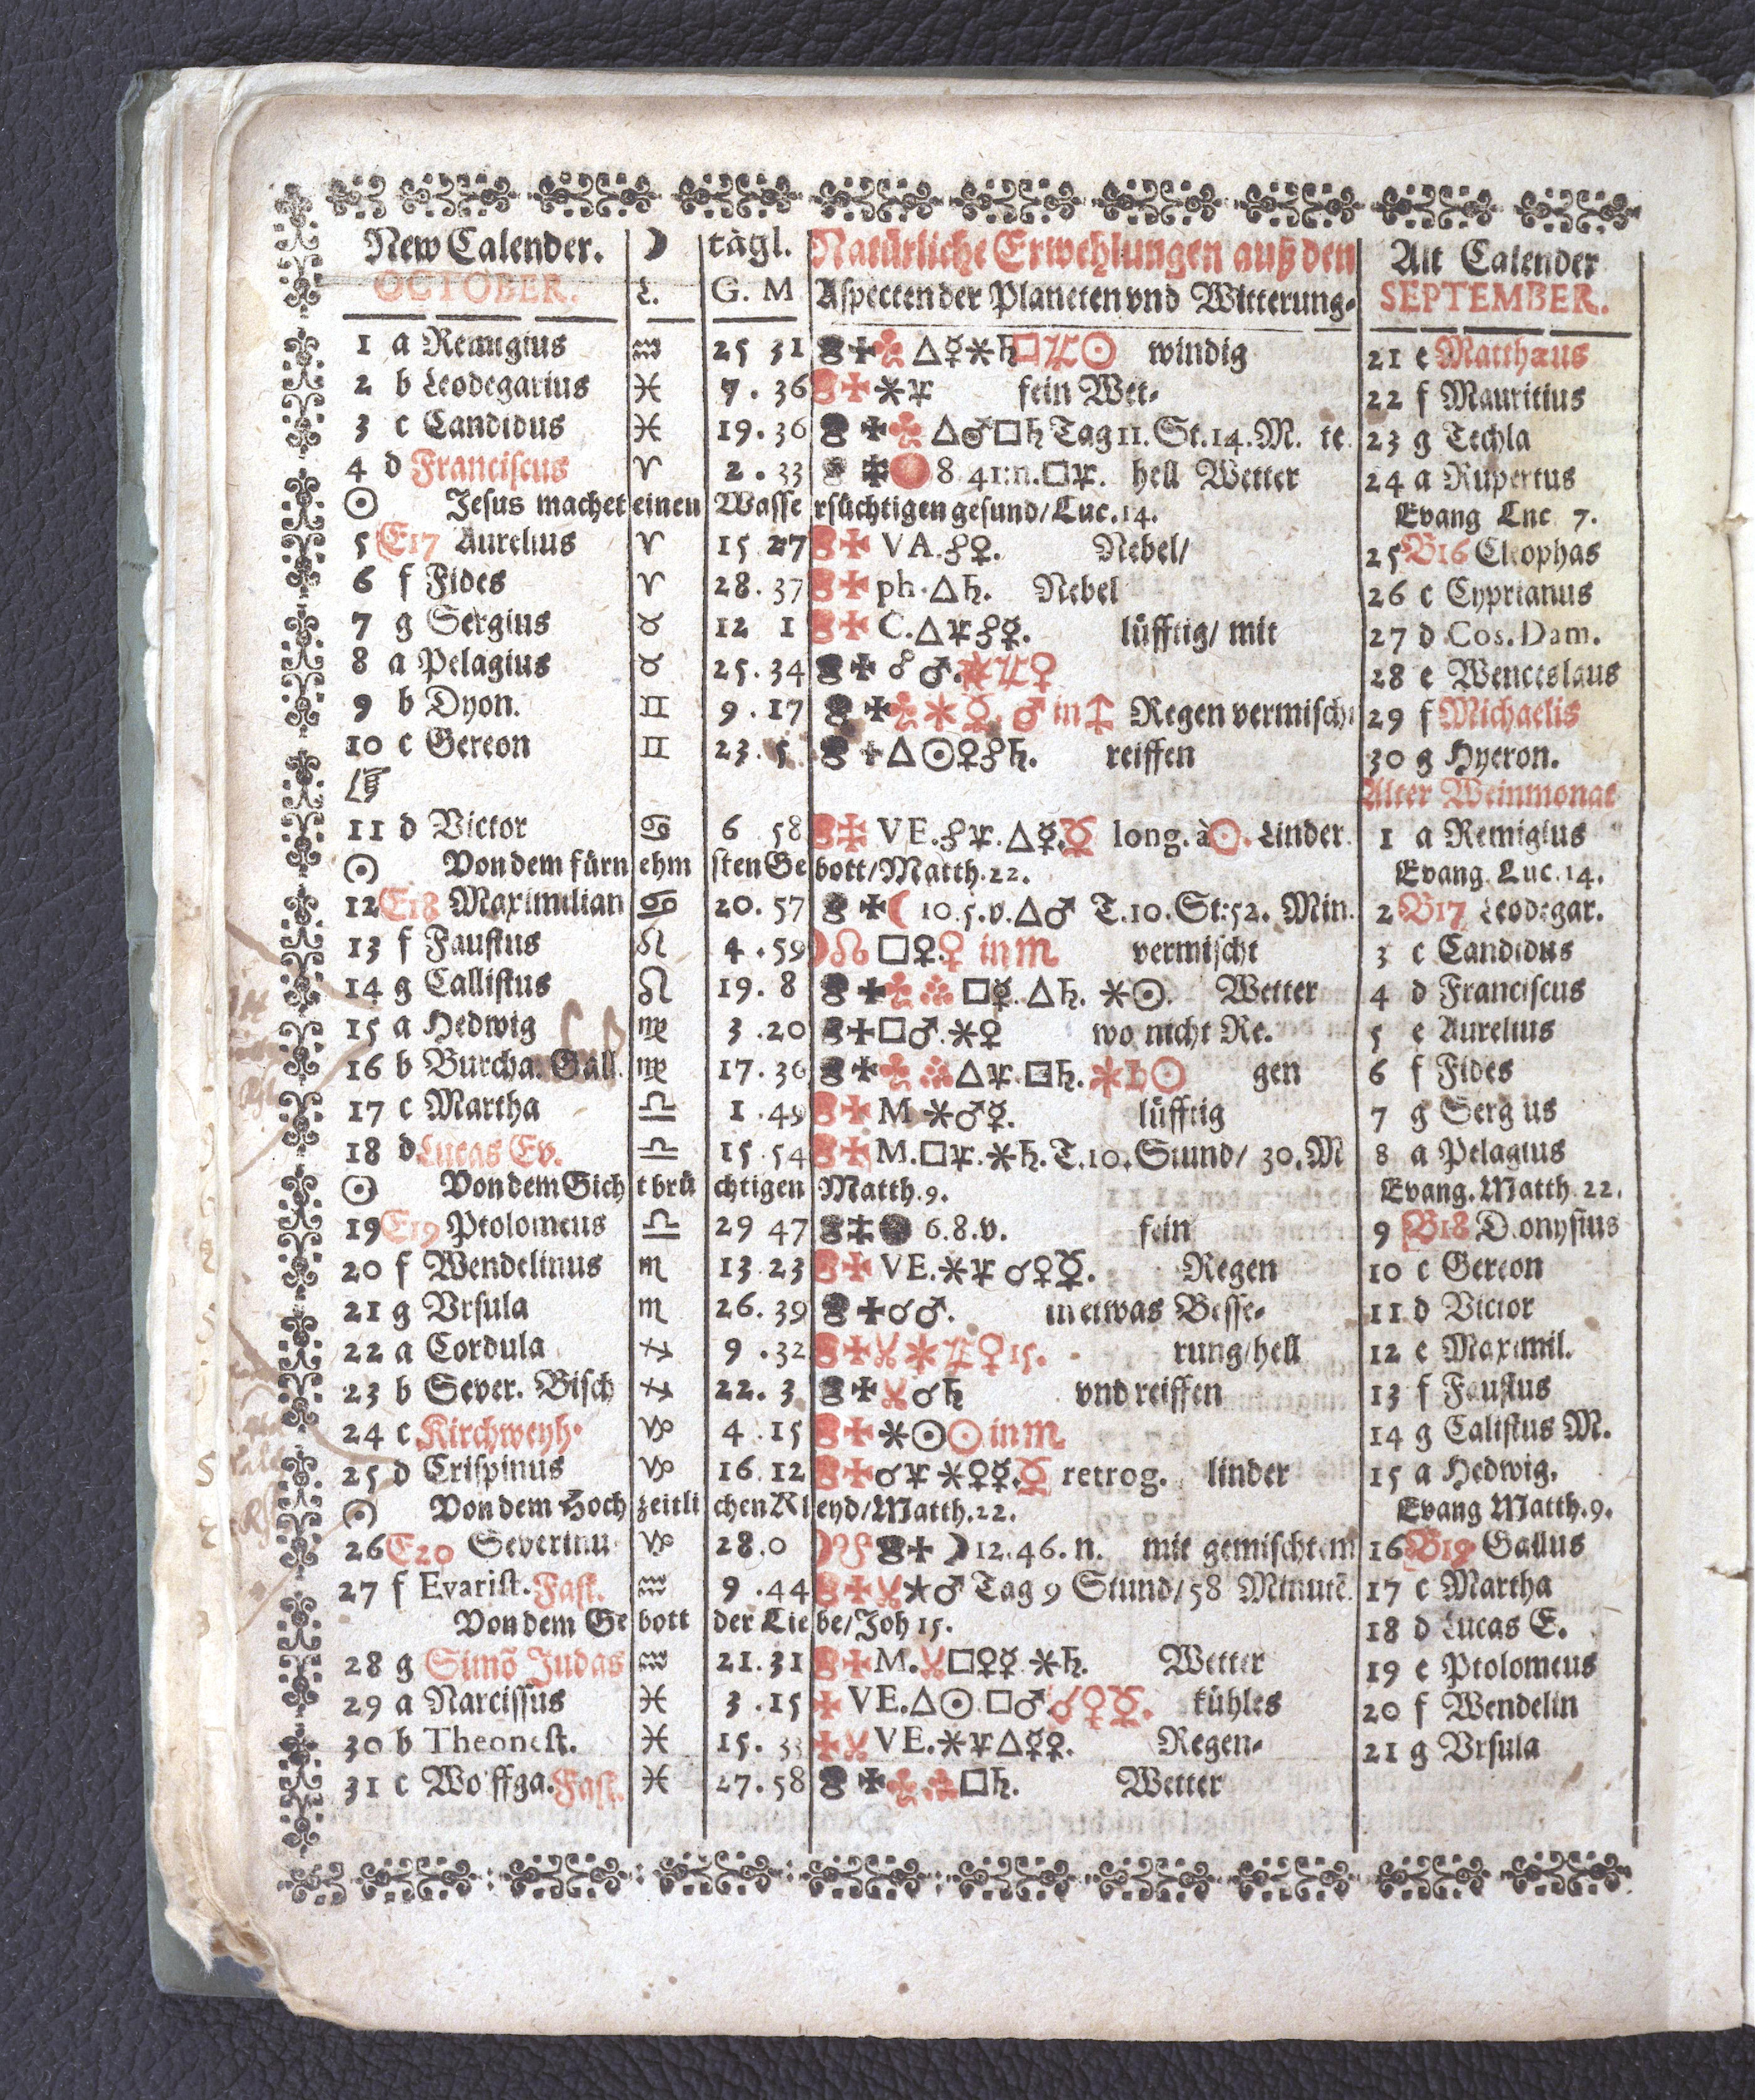 New Calender. ☽ tägl. Natürliche Erwehlungen auß den Alt Calender
OCTOBER. L. G. M Aspecten der Planeten vnd Witterung- SEPTEMBER.
1 a Remigius ♒ 25 31 △☿✶♄□♃☉ windig 21 e Matthæus
2 b Leodegarius ♓ 7. 36 ✶♃ fein Wet- 22 f Mauritius
3 c Candidus ♓ 19. 36 △♂□♄ Tag 11. St. 14. M. te 23 g Techla
4 d Franciscus ♈ 2. 33 8 41:n. □♃. hell Wetter 24 a Rupertus
☉ Jesus machet einen Wasse rsüchtigen gesund/ Luc. 14. Evang Lnc 7.
5 E17 Aurelius ♈ 15 27 VA. ☍♀. Nebel/ 25 B16 Cleophas
6 f Fides ♈ 28. 37 ph. △♄. Nebel 26 c Cyprianus
7 g Sergius ♉ 12 1 C. △♃☍☿. lüfftig/ mit 27 d Cos. Dam.
8 a Pelagius ♉ 25. 34 ☍♂. ✶♃♀ 28 e Wenceslaus
9 b Dyon. ♊ 9. 17 ✶☿. ♂ in ♐ Regen vermischt 29 f Michaelis
10 c Gereon ♊ 23. 5 △☉♀☍♄. reiffen 30 g Hyeron.
☞ Alter Weinmonat
11 d Victor ♋ 6 58 VE. ☍♃. △☿. ☿ long. à ☉. Linder. 1 a Remigius
☉ Von dem fürn ehm sten Ge bott/ Matth. 22. Evang. Luc. 14.
12 E18 Maximilian ♋ 20. 57 ☾ 10. 5. v. △♂ T. 10. St: 52. Min. 2 B17 Leodegar.
13 f Faustus ♌ 4. 59 ☽☊ □♀. ♀ in ♏ vermischt 3 c Candidus
14 g Callistus ♌ 19. 8 □☿. △♄. ✶☉. Wetter 4 d Franciscus
15 a Hedwig ♍ 3. 20 □♂. ✶♀ wo nicht Re. 5 e Aurelius
16 b Burcha. Gall. ♍ 17. 36 △♃. □♄. ✶♄☉ gen 6 f Fides
17 c Martha ♎ 1. 49 M ✶♂☿. lüfftig 7 g Serg us
18 d Lucas Ev. ♎ 15. 54 M. □♃. ✶♄. T. 10. Stund/ 30. M 8 a Pelagius
☉ Von dem Gich t brü chtigen Matth. 9. Evang. Matth. 22.
19 E19 Ptolomeus ♎ 29 47 6. 8. v. fein 9 B18 D.onysius
20 f Wendelinus ♏ 13. 23 VE. ✶♃ ☌♀☿. Regen 10 c Gereon
21 g Vrsula ♏ 26. 39 ☌♂. in etwas Besse- 11 d Victor
22 a Cordula ♐ 9. 32 ✶♃♀ 15. rung/ hell 12 e Maximil.
23 b Sever. Bisch ♐ 22. 3 ☌♄ vnd reiffen 13 f Faustus
24 c Kirchweyh. ♑ 4. 15 ✶☉☉ in ♏ 14 g Calistus M.
25 d Crispinus ♑ 16. 12 ☌♃ ✶♀☿. ☿ retrog. linder 15 a Hedwig.
☉ Von dem Hoch zeitli chen Kl eyd/ Matth. 22. Evang Matth. 9.
26 E20 Severinu ♑ 28. 0 ☽☋ ☽ 12. 46. n. mit gemischtem 16 B19 Gallus
27 f Evarist. Fast. ♒ 9. 44 ✶♂ Tag 9 Stund/ 58 Minutē 17 c Martha
Von dem Ge bott der Lie be/ Joh 15. 18 d Lucas E.
28 g Simō Judas ♒ 21. 31 M. □♀☿ ✶♄. Wetter 19 e Ptolomeus
29 a Narcissus ♓ 3. 15 VE. △☉. □♂ ☌♀☿. kühles 20 f Wendelin
30 b Theonest. ♓ 15. 33 VE. ✶♃△☿♀. Regen- 21 g Vrsula
31 c Wo ffga. Fast. ♓ 27. 58 □♄. Wetter